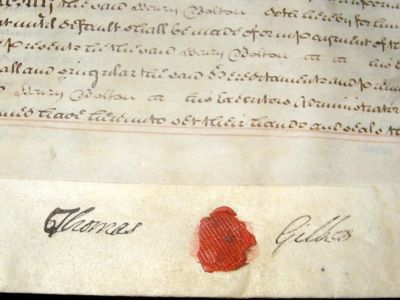 the said Henry Bolton doth hereby for him
until default shall be made of or in payment of the
presents the the said Henry Bolton at a his
all and singular the said Hereditaments and
Henry Bolton at his Executors Administrators
have hereunto set their hands and seals th
Thomas Gilkes